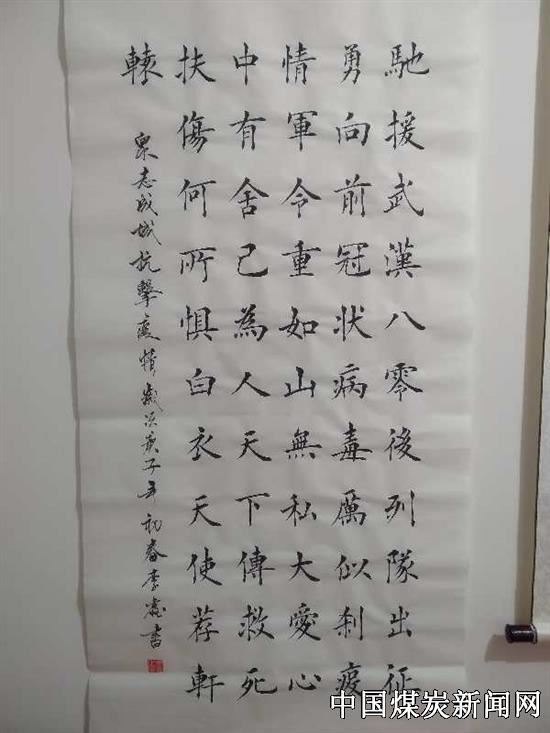 馳援武漢八零後列隊出征
勇向前冠狀病毒厲似刹疫
情軍令重如山無私大愛心
中有舍己為人天下傳救死
扶傷何所懼白衣天使荐軒
轅
衆志成城抗擊疫情歲次庚子年初春李書
中国煤炭新闻网